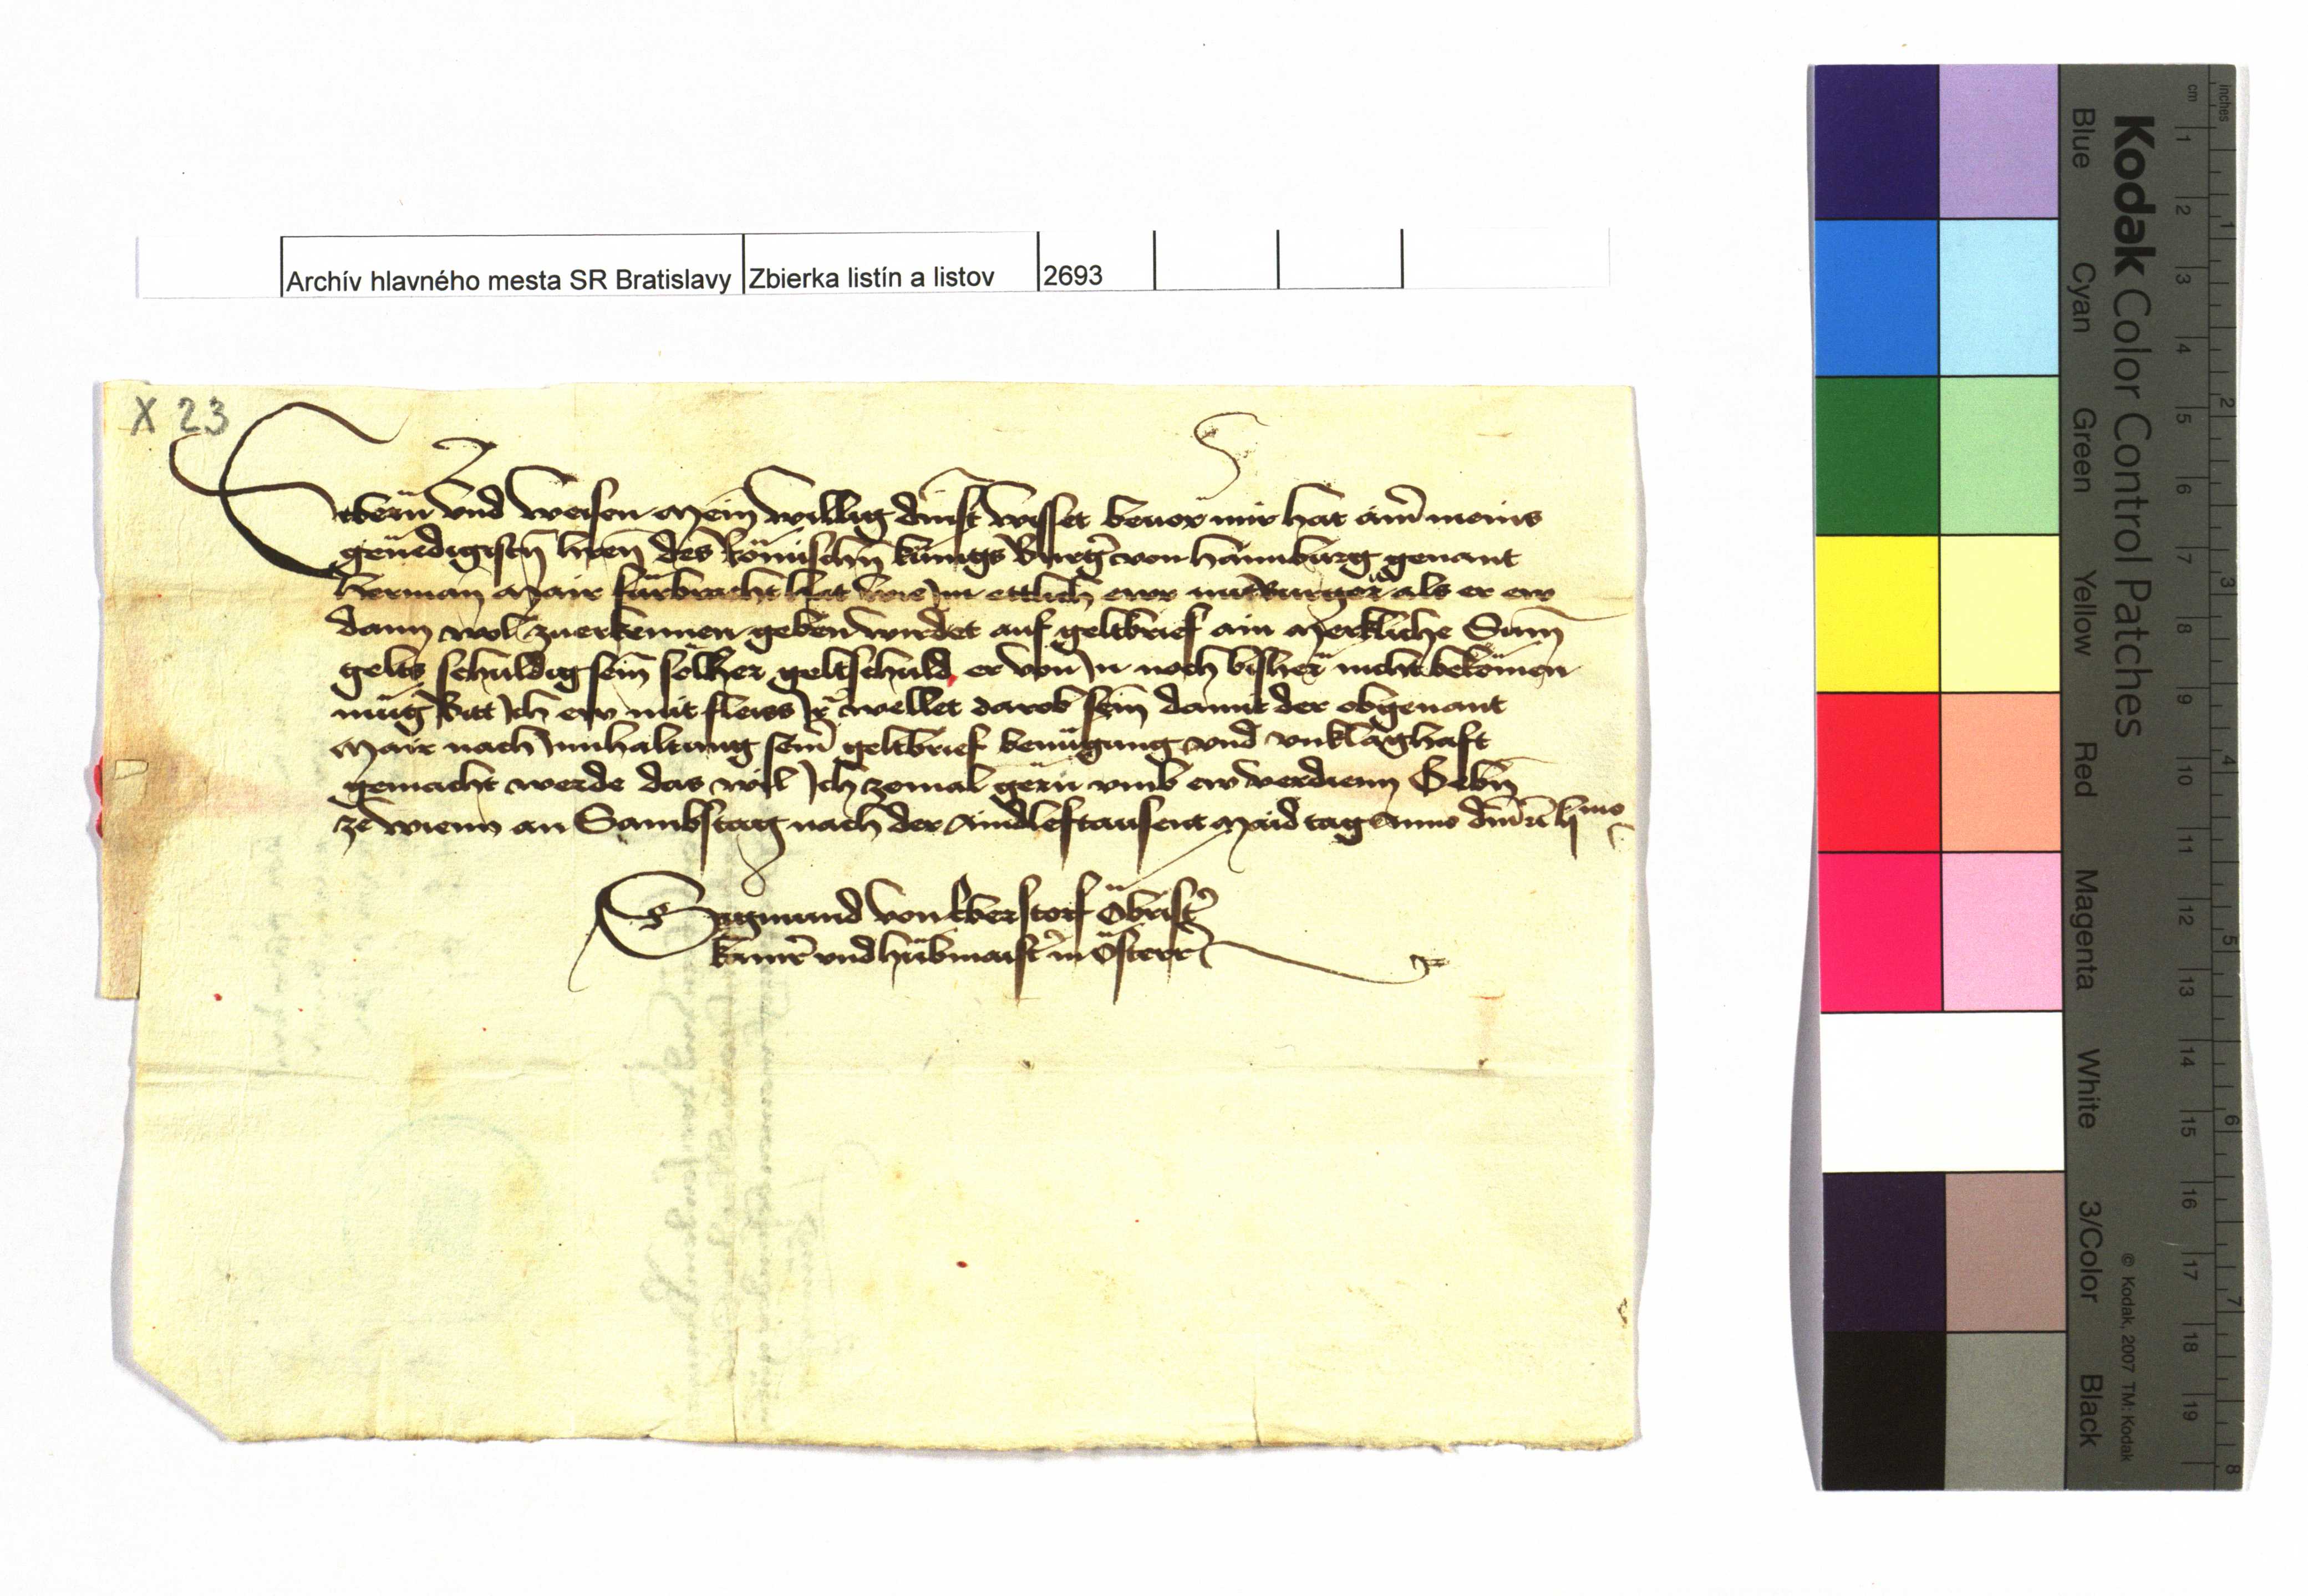 Archív hlavného mesta SR Bratislavy Zbierka listín a listov 2693
X 23
Erbern und weisen Mein willig dinst wisset beuor mir hat ainr meins
genedigistn hren des Römischn kunigs Burgr von Haimburg genant
Herman Mair furbracht hat wie Im ettlich ewr mitburger als er ew
dann wol zuerkennen geben wirdet auf geltbrief ain Merkliche Sum
gelts schuldig sein sölher geltschuld er von In noch bisher nicht bekömen
mug Bitt Ich ew mit fleiss Ir wellet darob sein damit der obgenant
Mair nach Innhaltung seinr geltbrief benügung und unklaghaft
gemacht werde das wil Ich zemal gern umb ew verdienn Gebn
ze wienn an Sambstag nach der Aindleftausent Maid tag Anno dmi etc lmo
Sigmund von Eberstorf Öbristr
kamrer und hubmaistr in Österr
Kodak Color Control Patches
Blue Cyan Green Yellow Red Magenta White 3/Color Black
© Kodak, 2007 TM: Kodak
inches 1 2 3 4 5 6 7 8
cm 1 2 3 4 5 6 7 8 9 10 11 12 13 14 15 16 17 18 19